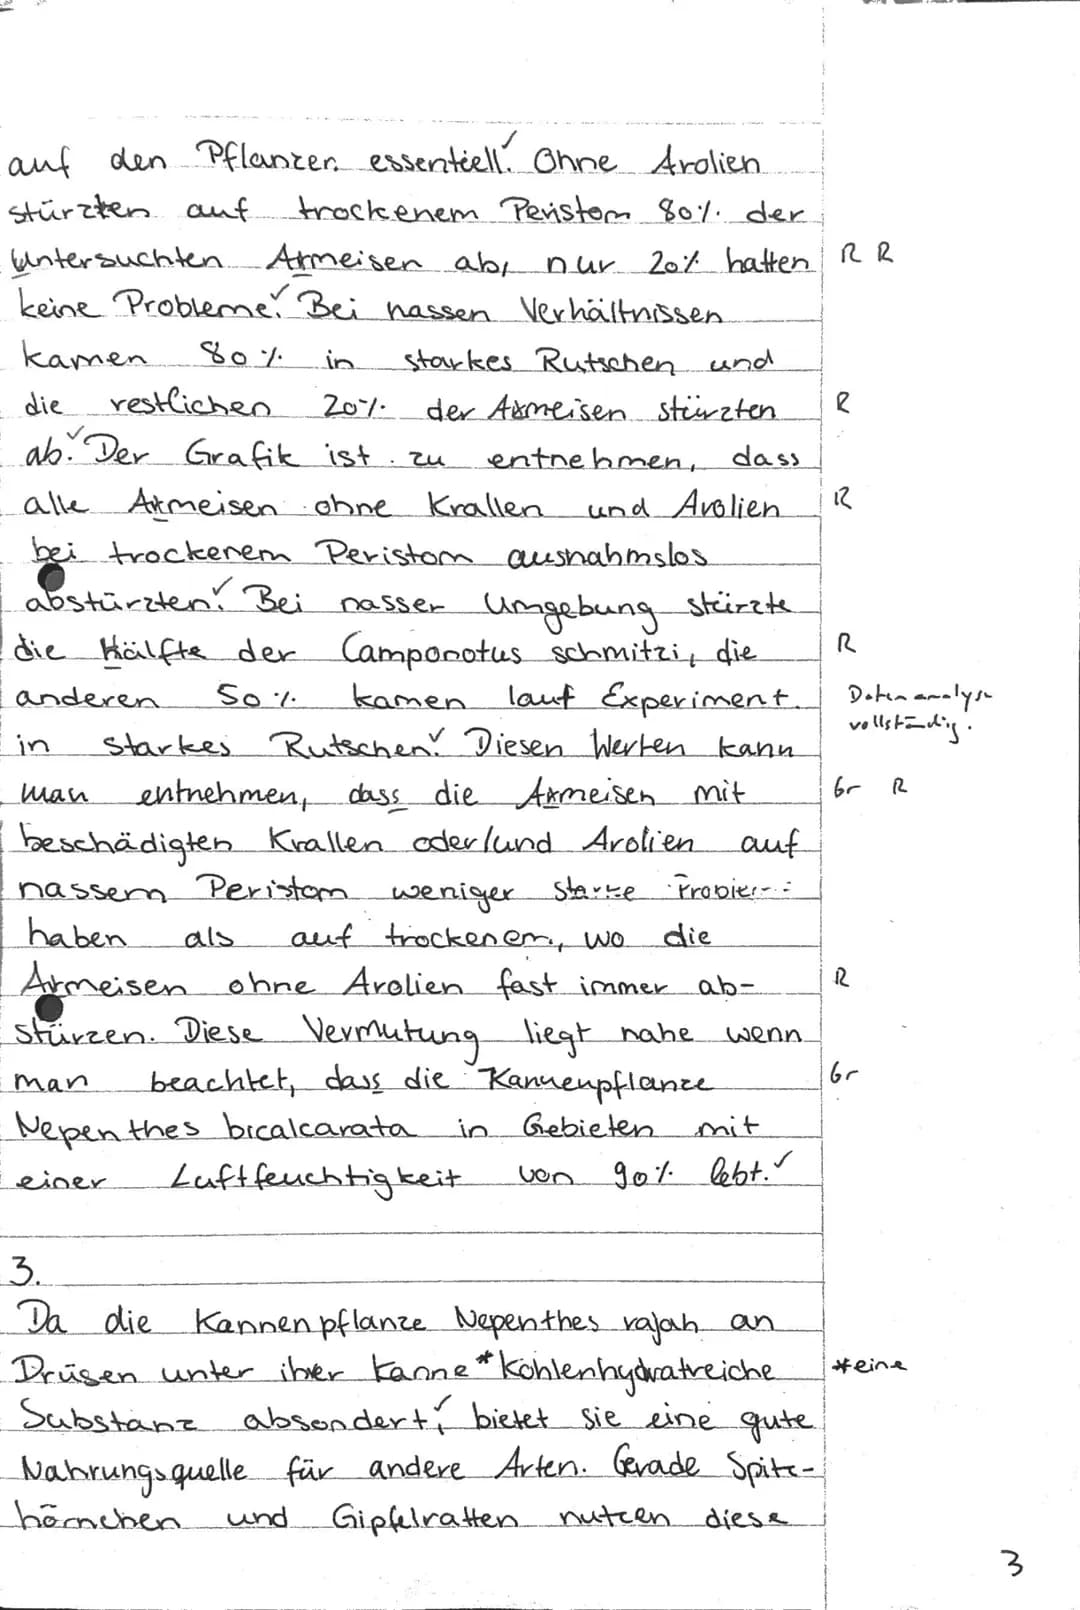 auf den Pflanzen essentiell.✓ Ohne Arolien
stürzten auf trockenem Peristom 80%. der
Untersuchten Armeisen ab, nur 20% hatten R R
keine Probleme.✓ Bei nassen Verhältnissen
kamen 80%. in starkes Rutschen und
die restlichen 20%. der Armeisen stürzten R
ab.✓ Der Grafik ist zu entnehmen, dass
alle Armeisen ohne Krallen und Arolien R
bei trockenem Peristom ausnahmslos
abstürzten.✓ Bei nasser Umgebung stürzte
die Hälfte der Camponotus schmitzi, die R
anderen 50%. kamen lauf Experiment. Datenanalyse
vollständig.
in starkes Rutschen.✓ Diesen Werten kann
man entnehmen, dass die Armeisen mit Gr R
beschädigten Krallen oder/und Arolien auf
nassem Peristom weniger starke
haben als auf trockenem, wo die
Armeisen ohne Arolien fast immer ab- R
stürzen. Diese Vermutung liegt nahe wenn
man beachtet, dass die Kannenpflanze Gr
Nepenthes bicalcarata in Gebieten mit
einer Luftfeuchtigkeit von 90%. lebt.✓
3.
Da die Kannenpflanze Nepenthes rajah an
Drüsen unter ihrer Kanne * Kohlenhydratreiche *eine
Substanz absondert,✓ bietet sie eine gute
Nahrungsquelle für andere Arten. Gerade Spitz-
hörnchen und Gipfelratten nutzen diese
3